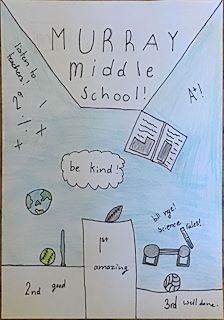 MURRAY
middle
school!
listen to
teachers!
A+!
2 % . / . x
+
be kind!!
science
rules!
1st
amazing
2nd good
3rd well done.